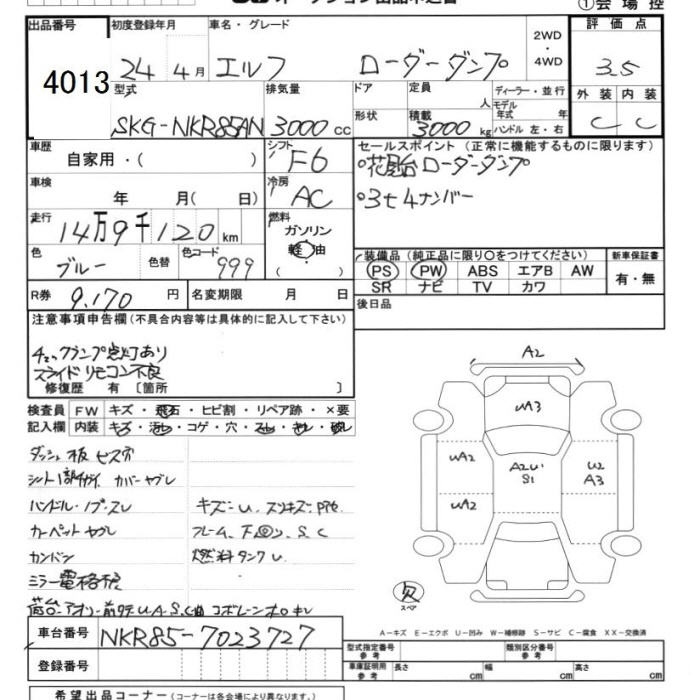 ①会場控
出品番号
4013
初度登録年月
24年4月
車名・グレード
エルフ ローダーダンプ
2WD・4WD
評価点
3.5
外装 内装
C C
型式
SKG-NKR85AN
排気量
3000cc
ドア
形状
定員
人
積載
3000kg
ディーラー・並行
モデル年式 年
ハンドル 左・右
車歴
自家用・( )
シフト
F6
車検
年 月( 日)
冷房
AC
走行
14万9千120km
燃料
ガソリン
軽油
色
ブルー
色替
色コード
999
R券
9,170円
名変期限 月 日
セールスポイント(正常に機能するものに限ります)
○花見台ローダーダンプ
○3t4ナンバー
装備品(純正品に限り○をつけてください)
PS PW ABS エアB AW
SR ナビ TV カワ
新車保証書
有・無
後日品
注意事項申告欄(不具合内容等は具体的に記入して下さい)
チェックランプ点灯あり
スライドリモコン不良
修復歴 有〔箇所 〕
検査員記入欄
FW キズ・飛石・ヒビ割・リペア跡・×要
内装 キズ・汚れ・コゲ・穴・スレ・キレ・破レ
ダッシュ板ビス穴
カバーヤブレ
ハンドル・ノブ・スレ
カーペットヤブレ
カンバン
ミラー電格
キズ・U
フレーム、下回り、S、C
燃料タンクU
A2
UA3
UA2
UA2
A2U
S1
U2
A3
スペア
A-キズ E-エクボ U-凹み W-補修跡 S-サビ C-腐食 XX-交換済
車台番号
NKR85-7023727
登録番号
型式指定番号
参考
類別区分番号
参考
車庫証明用
参考
長さ cm 幅 cm 高さ cm
希望出品コーナー(コーナーは各会場により異なります)